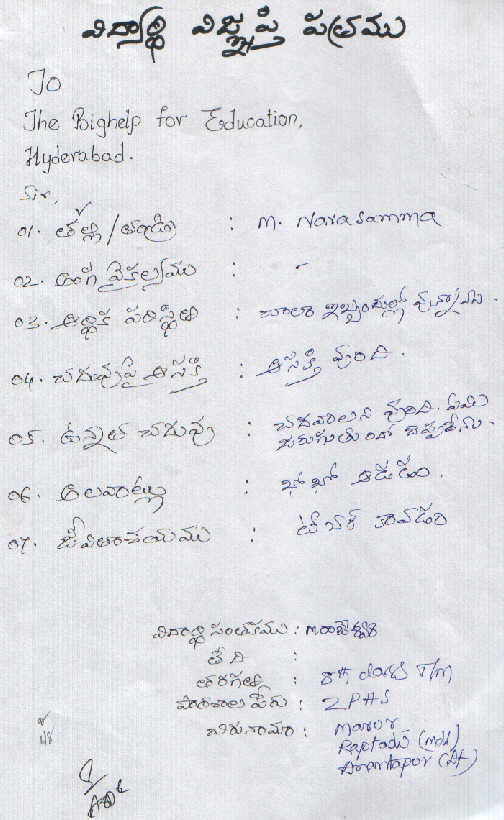 విద్యార్థి విజ్ఞప్తి పత్రము
To
The Bighelp for Education,
Hyderabad.
Sir,
01. తల్లి/తండ్రి : M. Narasamma
02. అంగ వైకల్యము : -
03. ఆర్థిక పరిస్థితి : చాలా ఇబ్బందుల్లో వున్నాము.
04. చదువుపై ఆసక్తి : ఆసక్తి వుంది.
05. ఉన్నత చదువు : చదవాలని వుంది. ఏమి
జరుగుతుందో చెప్పలేను.
06. అలవాట్లు : ఖోఖో ఆడడం.
07. జీవితాశయము : టీచర్ కావడం
విద్యార్థి సంతకము : M.రాజేశ్వరి
తేది :
తరగతి : 8th class T/M
పాఠశాల పేరు : ZPHS
చిరునామా : Marur
Raptadu (Md)
Anantapur (Dt)